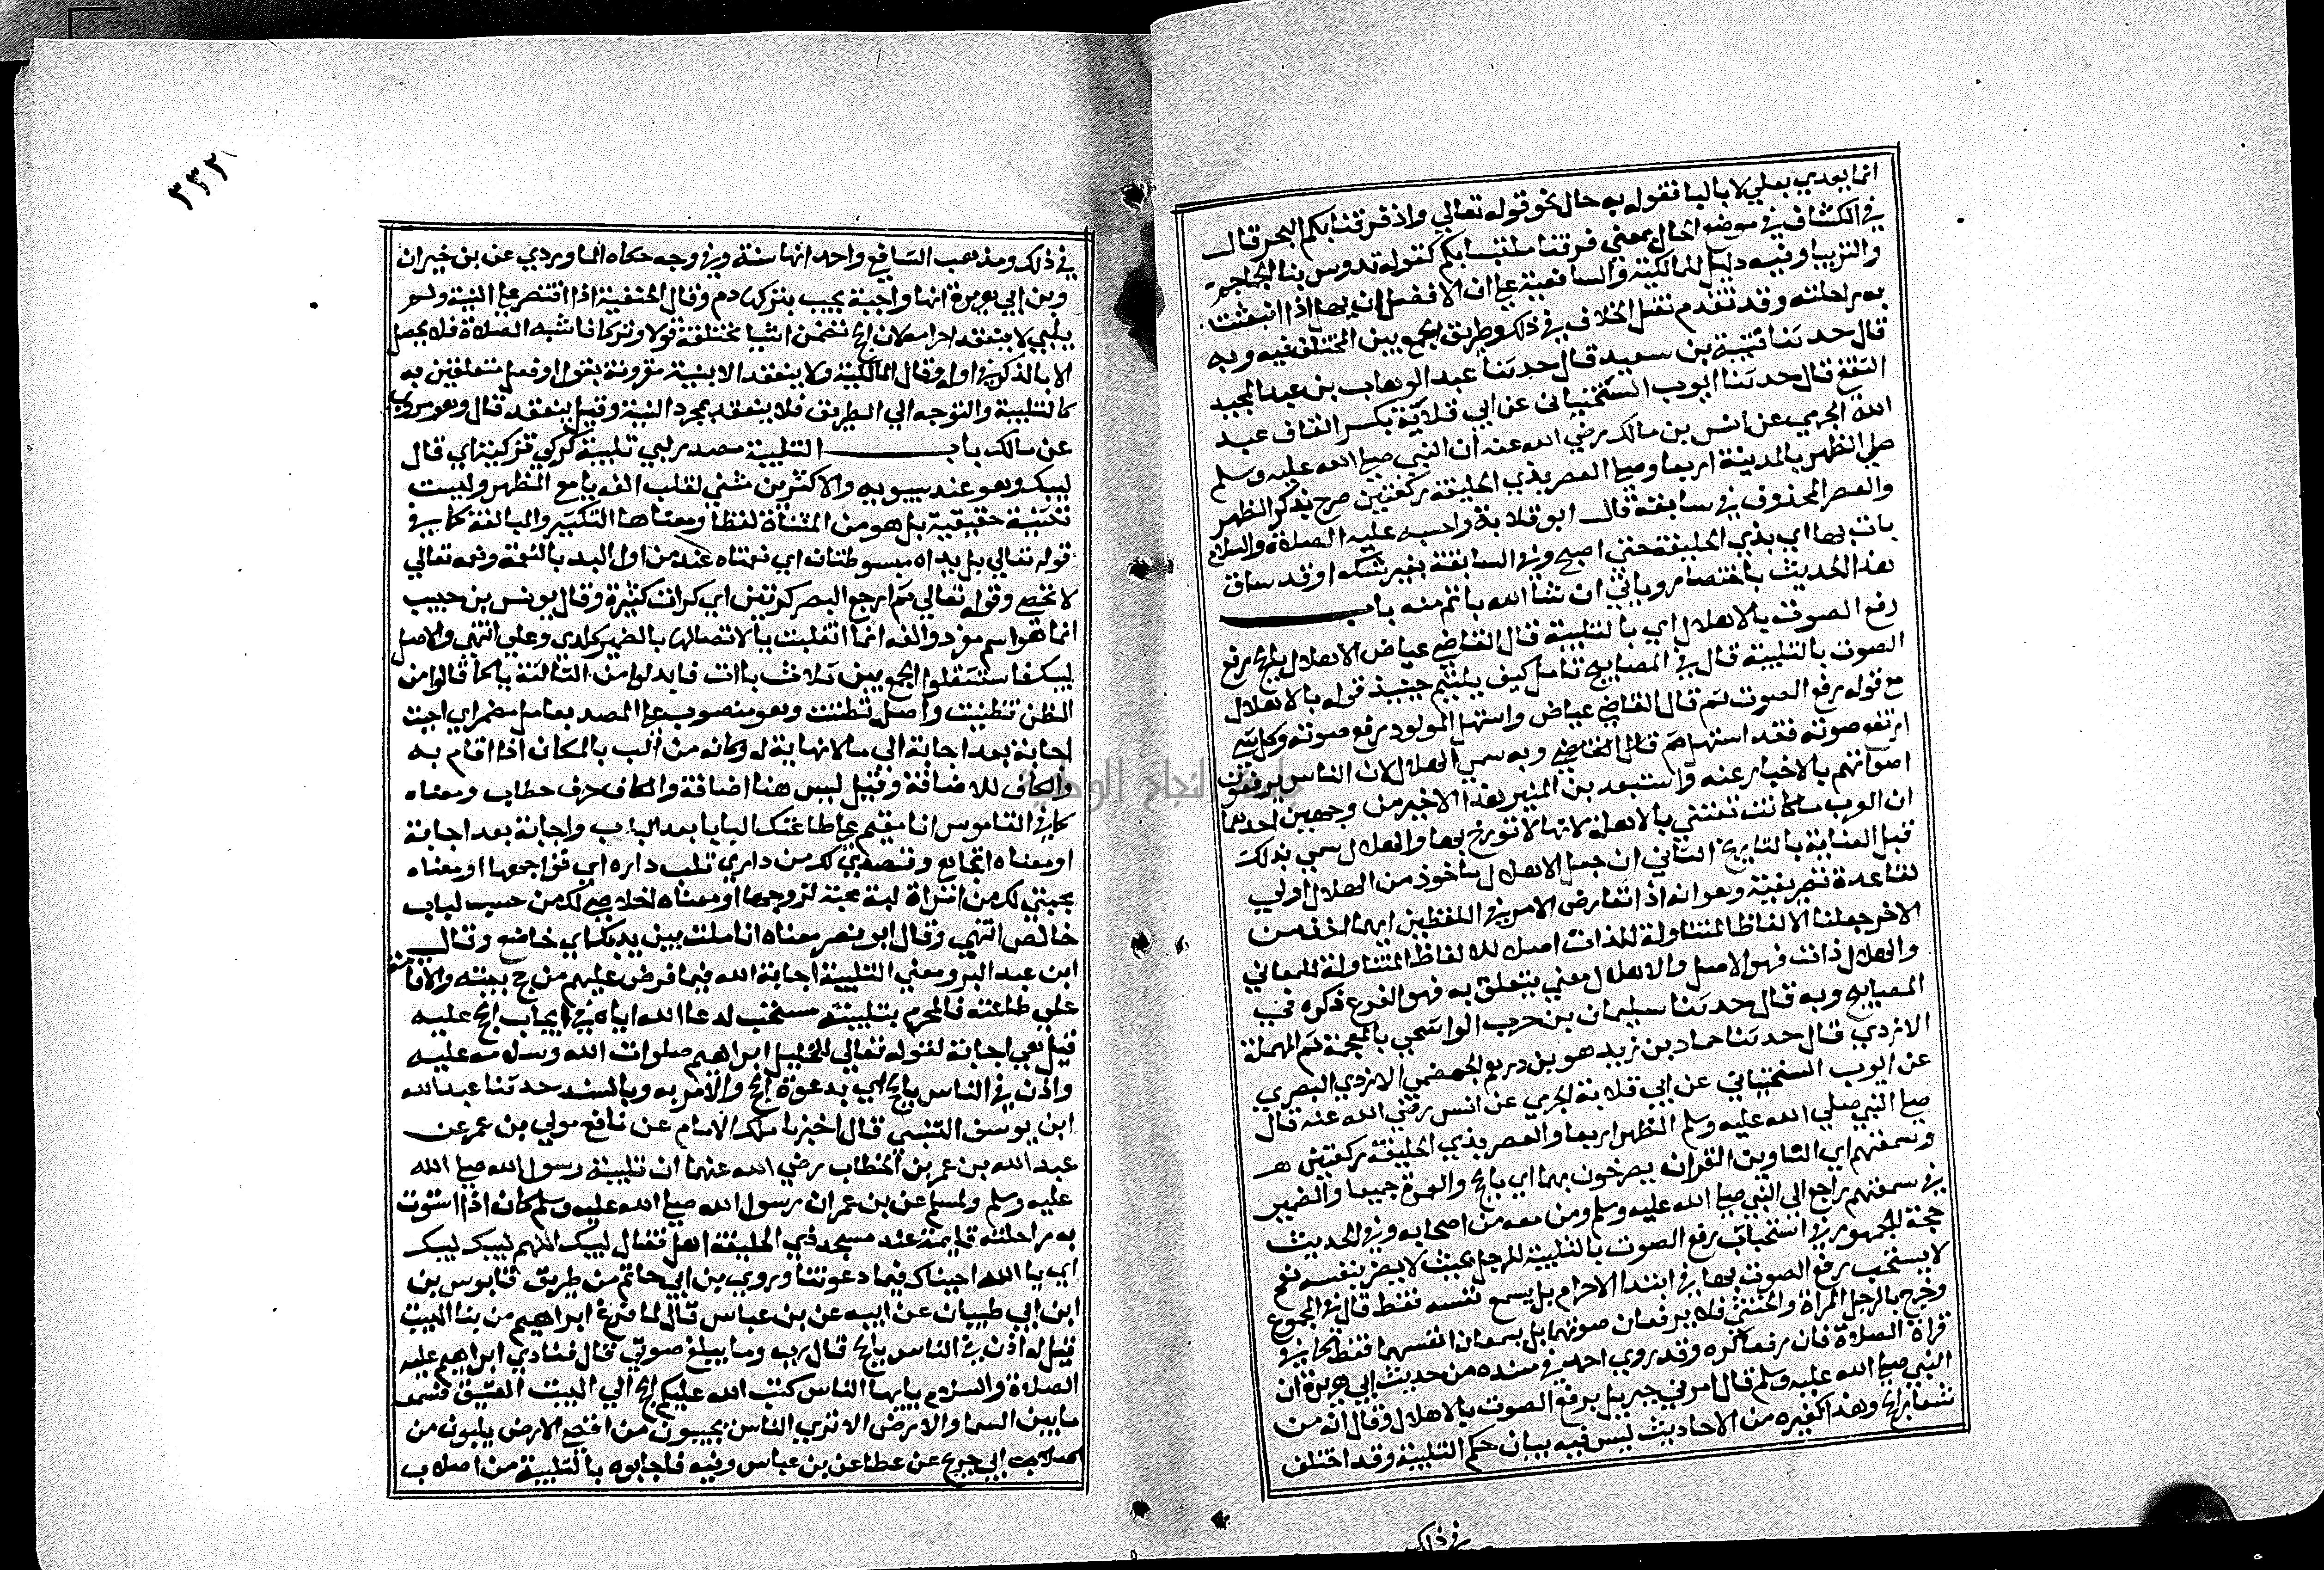 انما يعدي بعلي لا بالبا فقوله به حال نحو قوله تعالي واذ فرقنا بكم البحر قال
في الكشاف في موضع الحال بمعني فرقنا ملتبسا بكم كقوله تدوس بنا الجماجم
والتريبا وفيه دليل للمالكية والشافعية علي ان الافضل ان يهل اذا انبعثت
به راحلته وقد تقدم نقل الخلاف في ذلك وطريق الجمع بين المختلف فيه وبه
قال حدثنا قتيبة بن سعيد قال حدثنا عبد الوهاب بن عبد المجيد
الثقفي قال حدثنا ايوب السختياني عن ابي قلابة بكسر القاف عبد
الله الجرمي عن انس بن مالك رضي الله عنه ان النبي صلي الله عليه وسلم
صلي الظهر بالمدينة اربعا وصلي العصر بذي الحليفة ركعتين صرح بذكر الظهر
والعصر المحذوف في سابقه قال ابو قلابة واحسبه عليه الصلاة والسلام
بات بها اي بذي الحليفة حتي اصبح وفي السابقة بغير شك وقد ساق
هذا الحديث باختصار وياتي ان شا الله باتم منه باب
رفع الصوت بالاهلال اي بالتلبية قال القاضي عياض الاهلال بالحج رفع
الصوت بالتلبية قال في المصابيح تامل كيف يلتيم حينيذ قوله بالاهلال
مع قوله رفع الصوت ثم قال القاضي عياض واستهل المولود رفع صوته وكل شي
ارتفع صوته فقد استهل ثم قال القاضي وبه سمي الهلال لان الناس يرفعون
اصواتهم بالاخبار عنه واستبعد بن المنير هذا الاخير من وجهين احدهما
ان العرب ما كانت تعتني بالاهلة لانها لا تورخ بها والهلال سمي بذلك
قبل العناية بالتاريخ الثاني ان جعل الاهلال ماخوذ من الهلال اولي
لقاعدة تصريفية وهو انه اذا تعارض الامر في اللفظين ايهما اخذ من
الاخر جعلنا الالفاظ المتناولة للذات اصلا للالفاظ المتناولة للمعاني
والهلال ذات فهو الاصل والاهلال معني يتعلق به فهو الفرع ذكره في
المصابيح وبه قال حدثنا سليمان بن حرب الواشحي بالمعجمة ثم المهملة
الازدي قال حدثنا حماد بن زيد هو بن درهم الجهضمي الازدي البصري
عن ايوب السختياني عن ابي قلابة الجرمي عن انس رضي الله عنه قال
صلي النبي صلي الله عليه وسلم الظهر اربعا والعصر بذي الحليفة ركعتين
وسمعتهم اي الناوين القران يصرخون بهما اي بالحج والعمرة جميعا والضمير
في سمعتهم راجع الي النبي صلي الله عليه وسلم ومن معه من اصحابه وفي الحديث
حجة للجمهور في استحباب رفع الصوت بالتلبية للرجل بحيث لا يضر بنفسه نعم
لا يستحب رفع الصوت بها في ابتدا الاحرام بل يسمع نفسه فقط قال في المجموع
وخرج بالرجل المراة والخنثي فلا يرفعان صوتهما بل يسمعان انفسهما فقط كما في
قراة الصلاة فان رفعا كره وقد روي احمد في مسنده من حديث ابي هريرة ان
النبي صلي الله عليه وسلم قال امرني جبريل برفع الصوت بالاهلال وقال انه من
شعاير الحج وهذا كغيره من الاحاديث ليس فيه بيان حكم التلبية وقد اختلف
في ذلك
٣٣٢
في ذلك ومذهب الشافعي واحمد انها سنة وفي وجه حكاه الماوردي عن بن خيران
وبن ابي هريرة انها واجبة يجب بتركها دم وقال الحنفية اذا اقتصر علي النية ولم
يلبي لا ينعقد احرامه لان الحج تضمن اشيا مختلفة قولا وتركا فاشبه الصلاة فلا يحصل
الا بالذكر في اوله وقال المالكية ولا ينعقد الا بنية مقرونة بقول او فعل متعلقين به
كالتلبية والتوجه الي الطريق فلا ينعقد بمجرد النية وقيل ينعقد قال وهو مروي
عن مالك باب التلبية مصدر لبي تلبية كزكي تزكية اي قال
لبيك وهو عند سيبويه والاكثرين مثني لقلب الفه يا مع المظهر وليست
تثنية حقيقية بل هو من المثناة لفظا ومعناها التكثير والمبالغة كما في
قوله تعالي بل يداه مبسوطتان اي نعمتاه عند من اول اليد بالنعمة ونعمه تعالي
لا تحصي وقوله تعالي ثم ارجع البصر كرتين اي كرات كثيرة وقال يونس بن حبيب
انما هو اسم مفرد والفه انما انقلبت يا لاتصالها بالضمير كلدي وعلي انتهي والاصل
لبيك فاستثقلوا الجمع بين ثلاث باات فابدلوا من الثالثة يا كما قالوا من
الظن تظنيت واصله تظننت وهو منصوب علي المصدر بعامل مضمر اي اجبت
اجابة بعد اجابة الي ما لا نهاية له وكانه من الب بالمكان اذا اقام به
والكاف للاضافة وقيل ليس هنا اضافة والكاف حرف خطاب ومعناه
كما في القاموس انا مقيم علي طاعتك البابا بعد الباب واجابة بعد اجابة
او معناه اتجاهي وقصدي لك من داري تلب داره اي تواجهها او معناه
محبتي لك من امراة لبة محبة لزوجها او معناه اخلاصي لك من حسب لباب
خالص انتهي وقال ابو نصر معناه انا ملب بين يديك اي خاضع وقال
ابن عبد البر ومعني التلبية اجابة الله فيما فرض عليهم من حج بيته والاقامة
علي طاعته فالمحرم بتلبيته مستجيب لدعا الله اياه في ايجاب الحج عليه
قيل هي اجابة لقوله تعالي للخليل ابراهيم صلوات الله وسلامه عليه
واذن في الناس بالحج اي بدعوة الحج والامر به وبالسند حدثنا عبد الله
ابن يوسف التنيسي قال اخبرنا مالك الامام عن نافع مولي بن عمر عن
عبد الله بن عمر بن الخطاب رضي الله عنهما ان تلبية رسول الله صلي الله
عليه وسلم ولمسلم عن بن عمر ان رسول الله صلي الله عليه وسلم كان اذا استوت
به راحلته قايمة عند مسجد ذي الحليفة اهل فقال لبيك اللهم لبيك لبيك
اي يا الله اجبناك فيما دعوتنا وروي بن ابي حاتم من طريق قابوس بن
ابن ابي ظبيان عن ابيه عن بن عباس قال لما فرغ ابراهيم من بنا البيت
قيل له اذن في الناس بالحج قال رب وما يبلغ صوتي قال فنادي ابراهيم عليه
الصلاة والسلام يايها الناس كتب الله عليكم الحج الي البيت العتيق فسمعه
ما بين السما والارض الا تري الناس يجيبون من اقصي الارض يلبون من
ابن جريج عن عطا عن بن عباس وفيه فاجابوه بالتلبية من اصلاب